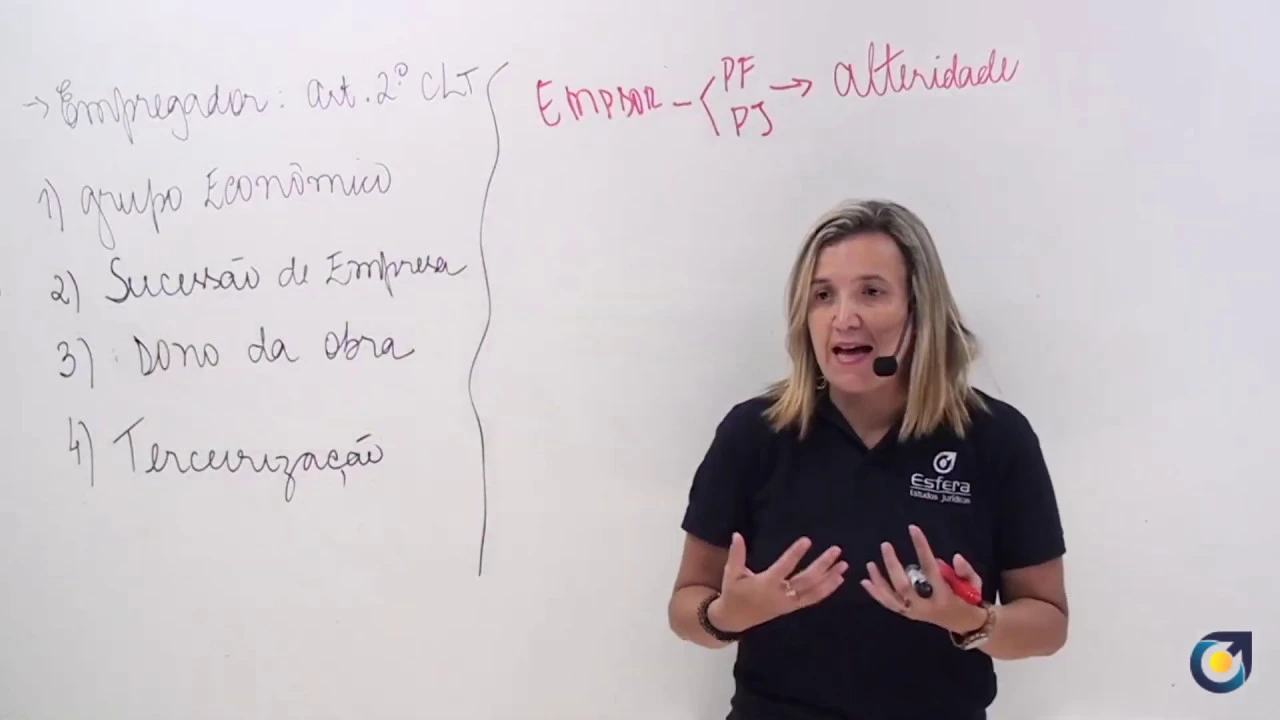 → Empregador: art. 2º CLT
1) grupo Econômico
2) Sucessão de Empresa
3) Dono da obra
4) Terceirização
EMPDOR - PF → alteridade
PJ
Esfera
Estudos Jurídicos